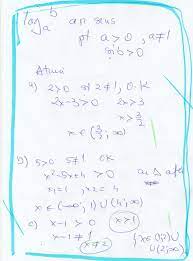 log_a b are sens
pt a>0, a≠1
şi b>0
Atunci
a) 2>0 şi 2≠1, O.K
2x-3>0 2x>3
x>3/2
x∈(3/2;∞)
b) 5>0 5≠1 OK
x²-5x+4>0
x₁=1, x₂=4
x∈(-∞;1)∪(4;∞)
c) x-1>0 x>1
x-1≠1
x≠2